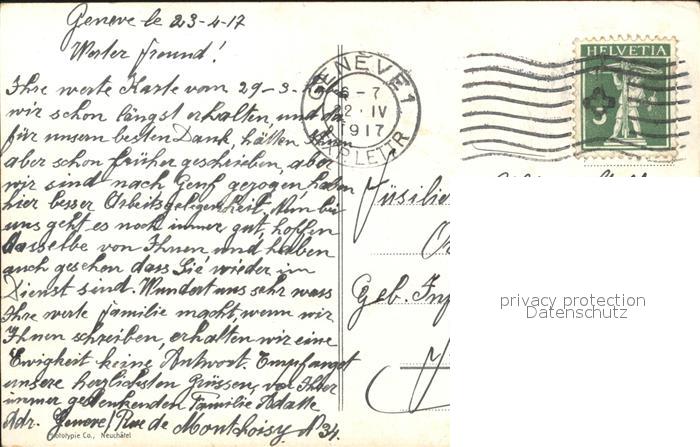 Geneve le 23-4-17
Werter Freund!
Ihre werte Karte vom 29-3- haben
wir schon längst erhalten, und da
für unsern besten Dank, hätten Ihnen
aber schon früher geschrieben, aber
wir sind nach Genf gezogen, haben
hier besser Arbeitsgelegenheit, Nun bei
uns geht es noch immer gut, hoffen
dasselbe von Ihnen und haben
auch gesehen dass Sie wieder im
Dienst sind. Wundert uns sehr was
Ihre werte Familie macht, wenn wir
Ihnen schreiben, erhalten wir eine
Ewigkeit keine Antwort. Empfanget
unsere herzlichsten Grüssen, von Ihrer
immer gedenkenden Familie
Adr. Geneve, Rue de Montchoisy No 34.
Phototypie Co., Neuchâtel
GENÈVE 1
6-7
22·IV
1917
EXP. LETTR.
HELVETIA
Füsilier
Geb. Inf
privacy protection
Datenschutz